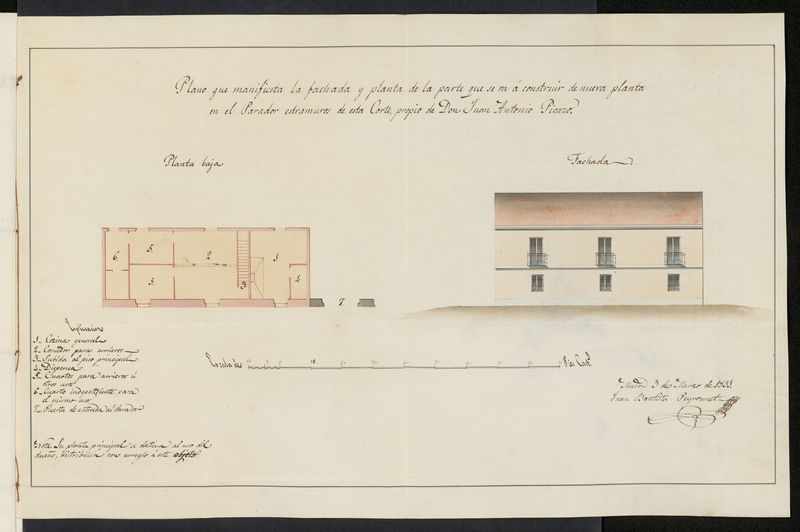 Plano que manifiesta la fachada y planta de la parte que se va á construir de nueva planta
en el Parador estramuros de esta Corte, propio de Don Juan Antonio Picazo.
Planta baja
Fachada
6.
5.
2
1
5.
3
4
7
Esplicacion
1 Cocina general
2 Comedor para arrieros
3 Subida al piso principal
4 Dispensa
5 Cuartos para arrieros ú
otros usos
6 Cuarto independiente para
el mismo uso
7 Puerta de entrada al Parador
Escala de
10
Pies Castˢ
Madrid 3 de Marzo de 1833
Juan Bautista Peyronnet
Nota. La planta principal se destina al uso del
dueño, distribuida con arreglo á este objeto